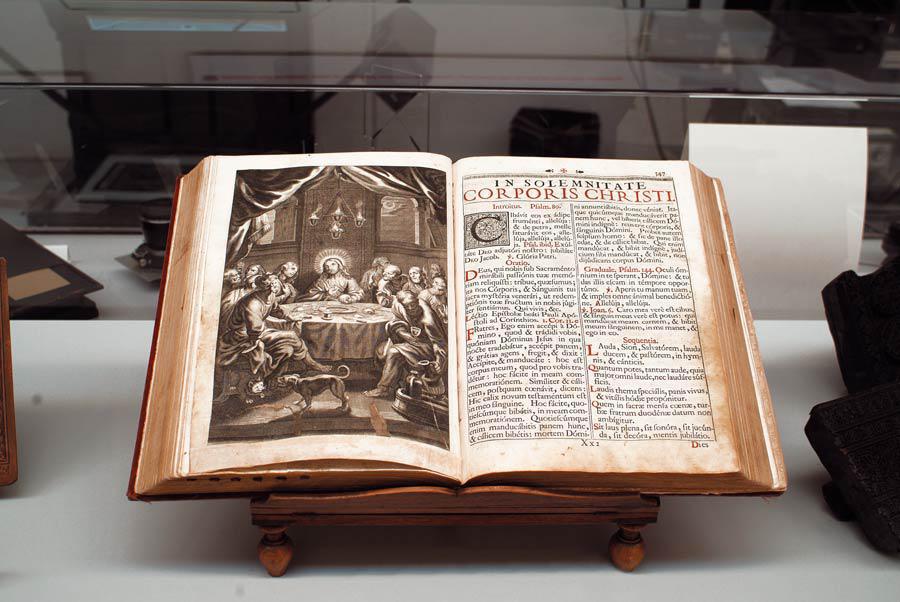 147
IN SOLEMNITATE
CORPORIS CHRISTI.
Introitus. Psalm. 80.
CIbávit eos ex ádipe
fruménti, allelúja:
& de petra, melle
saturávit eos, alle-
lúja, allelúja, allelú-
ja. Psal. ibid. Exúl-
táte Deo adjutóri nostro: jubiláte
Deo Jacob. ℣. Glória Patri.
Oratio.
DEus, qui nobis sub Sacraménto
mirábili passiónis tuæ memó-
riam reliquísti: tríbue, quǽsumus;
ita nos Córporis, & Sánguinis tui
sacra mystéria venerári, ut redem-
ptiónis tuæ fructum in nobis júgi-
ter sentiámus. Qui vivis, &c.
Léctio Epístolæ beáti Pauli Apó-
stoli ad Corínthios. 1. Cor. 11. c
FRatres, Ego enim accépi à Dó-
mino, quod & trádidi vobis,
quóniam Dóminus Jesus in qua
nocte tradebátur, accépit panem,
& grátias agens, fregit, & dixit:
Accípite, & manducáte: hoc est
corpus meum, quod pro vobis tra-
détur: hoc fácite in meam com-
memoratiónem. Simíliter & cáli-
cem, postquam cœnávit, dicens:
Hic calix novum testaméntum est
in meo sánguine. Hoc fácite, quo-
tiescúmque bibétis, in meam com-
memoratiónem. Quotiescúmque
enim manducábitis panem hunc,
& cálicem bibétis: mortem Dómi-
ni annuntiábitis, donec véniat. Ita-
que quicúmque manducáverit pa-
nem hunc, vel bíberit cálicem Dó-
mini indignè: reus erit córporis, &
sánguinis Dómini. Probet autem
seípsum homo: & sic de pane illo
edat, & de cálice bibat. Qui enim
mandúcat, & bibit indignè, judí-
cium sibi mandúcat, & bibit, non
dijúdicans corpus Dómini.
Graduale. Psalm. 144. Oculi óm-
nium in te sperant, Dómine: & tu
das illis escam in témpore oppor-
túno. ℣. Aperis tu manum tuam,
& imples omne ánimal benedictióne.
Allelúja, allelúja.
℣. Joan. 6. Caro mea verè est cibus,
& sanguis meus verè est potus: qui
mandúcat meam carnem, & bibit
meum sánguinem, in me manet, &
ego in eo.
Sequentia.
LAuda, Sion, Salvatórem, lauda
ducem, & pastórem, in hym-
nis, & cánticis.
Quantum potes, tantum aude, quia
major omni laude, nec laudáre súf-
ficis.
Laudis thema speciális, panis vivus,
& vitális hódie propónitur.
Quem in sacræ mensa cœnæ, tur-
bæ fratrum duodénæ datum non
ambígitur.
Sit laus plena, sit sonóra, sit jucún-
da, sit decóra, mentis jubilátio.
Dies